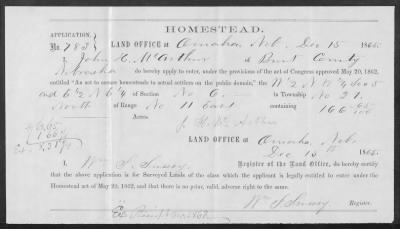 HOMESTEAD.
APPLICATION. LAND OFFICE at Omaha, Neb, Dec 15 186
No. 785
I, John H. McArthur of Burt County
Nebraska do hereby apply to enter, under the provisions of the act of Congress approved May 20, 1862,
entitled "An act to secure homesteads to actual settlers on the public domain," the W½ N W¼ Sec 5
and E½ N E¼ of Section No. 6 in Township No 21
North of Range No 11 East containing 166 65/100
Acres.
J. H. McArthur
LAND OFFICE at Omaha, Neb.
Dec 15th 186
I, Wm Register of the Land Office, do hereby certify
that the above application is for Surveyed Lands of the class which the applicant is legally entitled to enter under the
Homestead act of May 20, 1862, and that there is no prior, valid, adverse right to the same.
Wm Register.